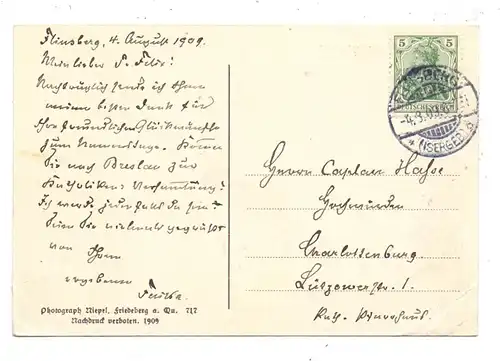 Flinsberg, 4. August 1909.
Mein lieber P. Felix!
Nachträglich sende ich Ihnen
meinen besten Dank für
Ihre freundlichen Glückwünsche
zum Namenstage. Kommen
Sie nach Breslau zur
Katholiken-Versammlung?
Ich werde jedenfalls da sein.
Seien Sie vielmals gegrüßt
von Ihrem
ergebenen
Photograph Niepel, Friedeberg a. Qu. 717
Nachdruck verboten. 1909
5 5
DEUTSCHES
FLINSBERG
-4.8.09
* (ISERGEB.)
Herrn Caplan
Hochwürden
Charlottenburg
Lützowerstr. 1.
Kath. Pfarrhaus.